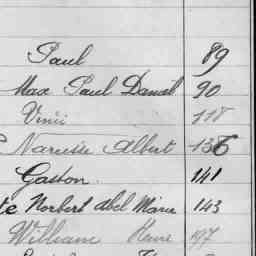 Paul 89
Max Paul Daniel 90
118
Narcisse Albert 136
Gaston 141
te Norbert Abel Marie 143
William Henri 197